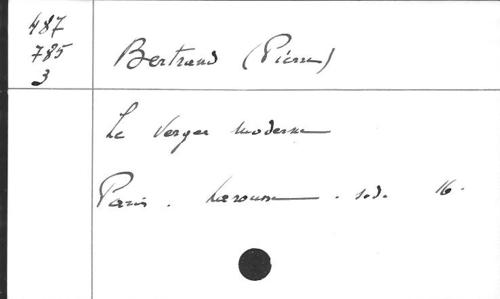 487
785
3
Bertrand (Pierre)
Le Verger moderne
Paris. Larousse. s.d. 16.